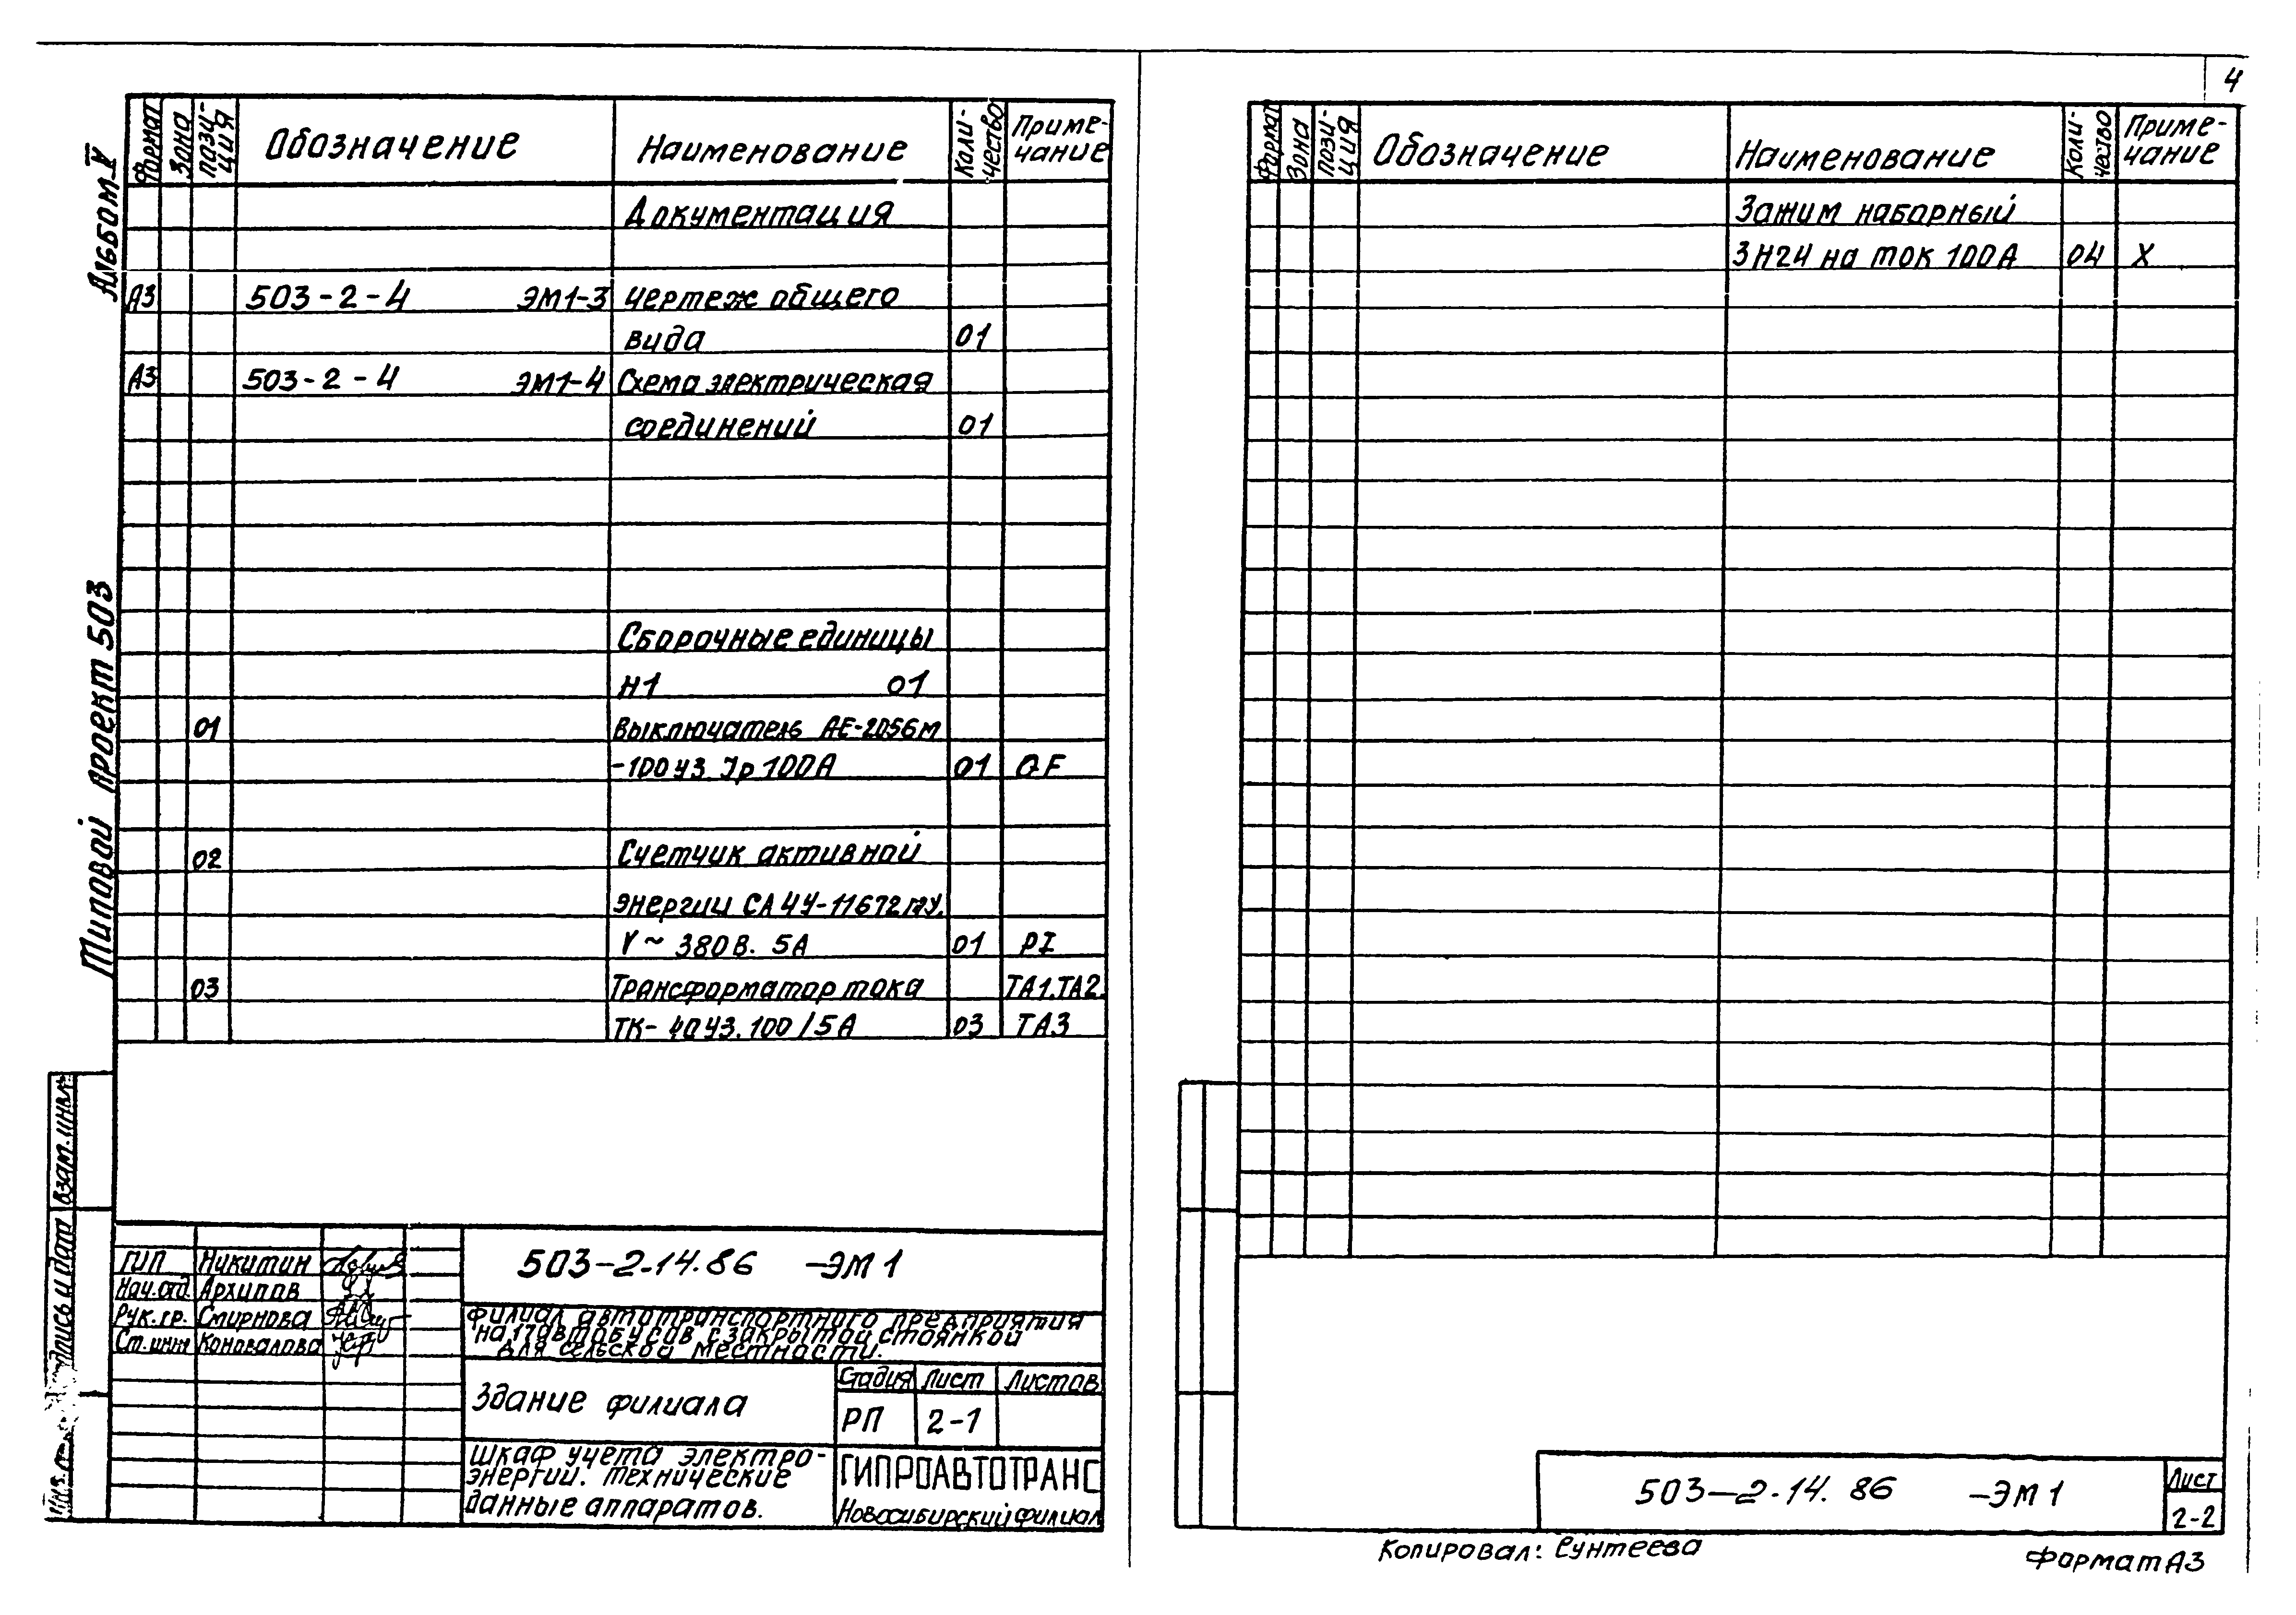 4
Альбом V
Типовой проект 503
Формат Зона Позиция Обозначение Наименование Количество Примечание
Документация
А3 503-2-4 ЭМ1-3 Чертеж общего
вида 01
А3 503-2-4 ЭМ1-4 Схема электрическая
соединений 01
Сборочные единицы
Н1 01
01 Выключатель АЕ-2056М
-100У3 Jр 100А 01 QF
02 Счетчик активной
энергии СА4У-И672М
V~ 380В. 5А 01 PI
03 Трансформатор тока ТА1.ТА2.
ТК-40У3.100/5А 03 ТА3
Взам.инв.
Подпись и дата
ГИП Никитин
Нач.отд. Архипов
Рук.гр. Смирнова
Ст.инж Коновалова
503-2-14.86 -ЭМ1
Филиал автотранспортного предприятия
на 17 автобусов с закрытой стоянкой
для сельской местности.
Здание филиала
Стадия Лист Листов
РП 2-1
Шкаф учета электро-
энергии. Технические
данные аппаратов.
ГИПРОАВТОТРАНС
Новосибирский филиал
Формат Зона Позиция Обозначение Наименование Количество Примечание
Зажим наборный
ЗН24 на ток 100А 04 Х
503-2-14.86 -ЭМ1
Лист
2-2
Копировал: Сунтеева
Формат А3